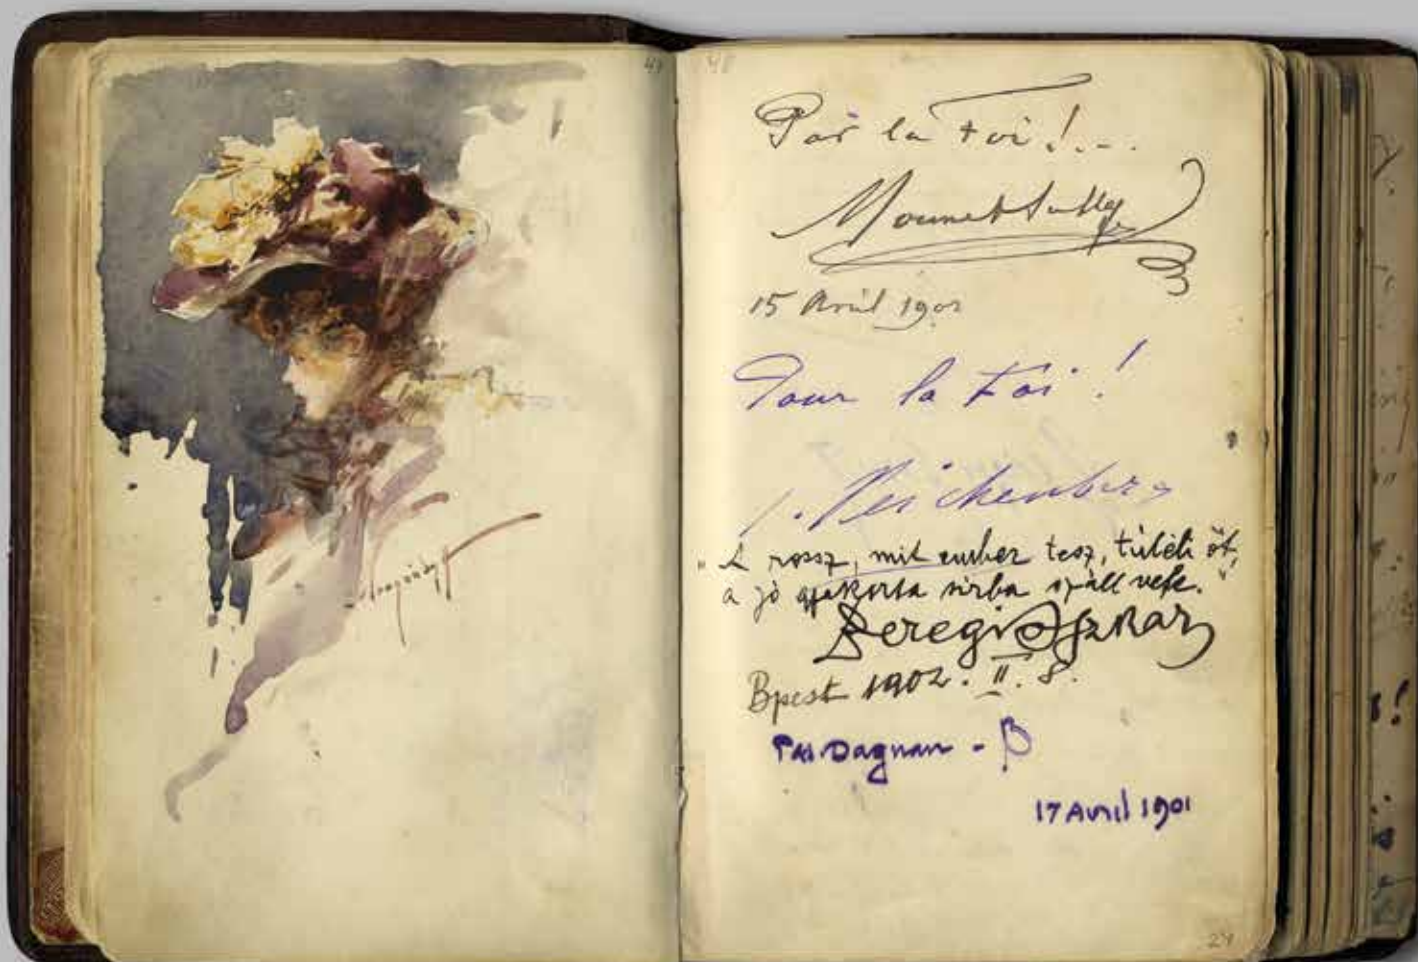 47
48
Par la Foi!...
Mounet Sully
15 Avril 1901
Pour la Foi!
Reichenberg
"A rossz, mit ember tesz, túléli őt,
a jó gyakorta sirba száll vele."
Beregi Oszkár
Bpest 1902. II. 8.
Dagnan - B
17 Avril 1901
24